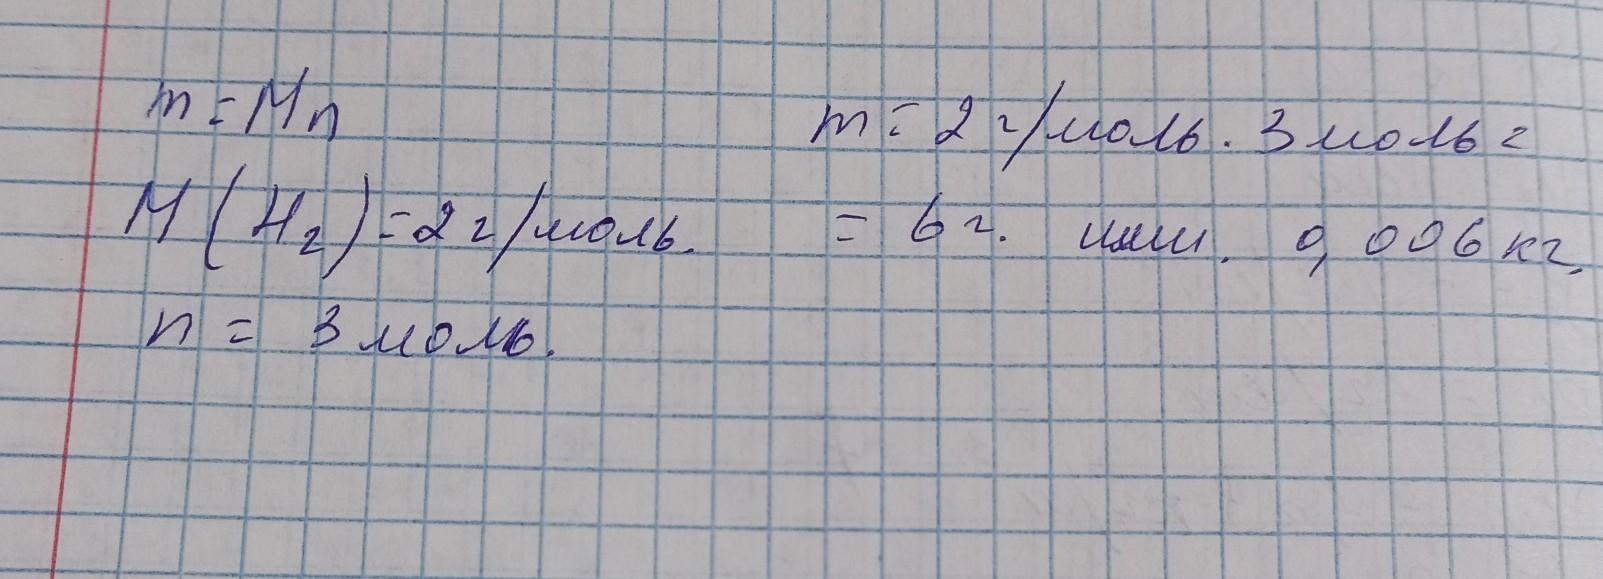 m = Mn
M (H₂) = 2 г/моль.
n = 3 моль.
m = 2 г/моль · 3 моль =
= 6 г. или. 0,006 кг.